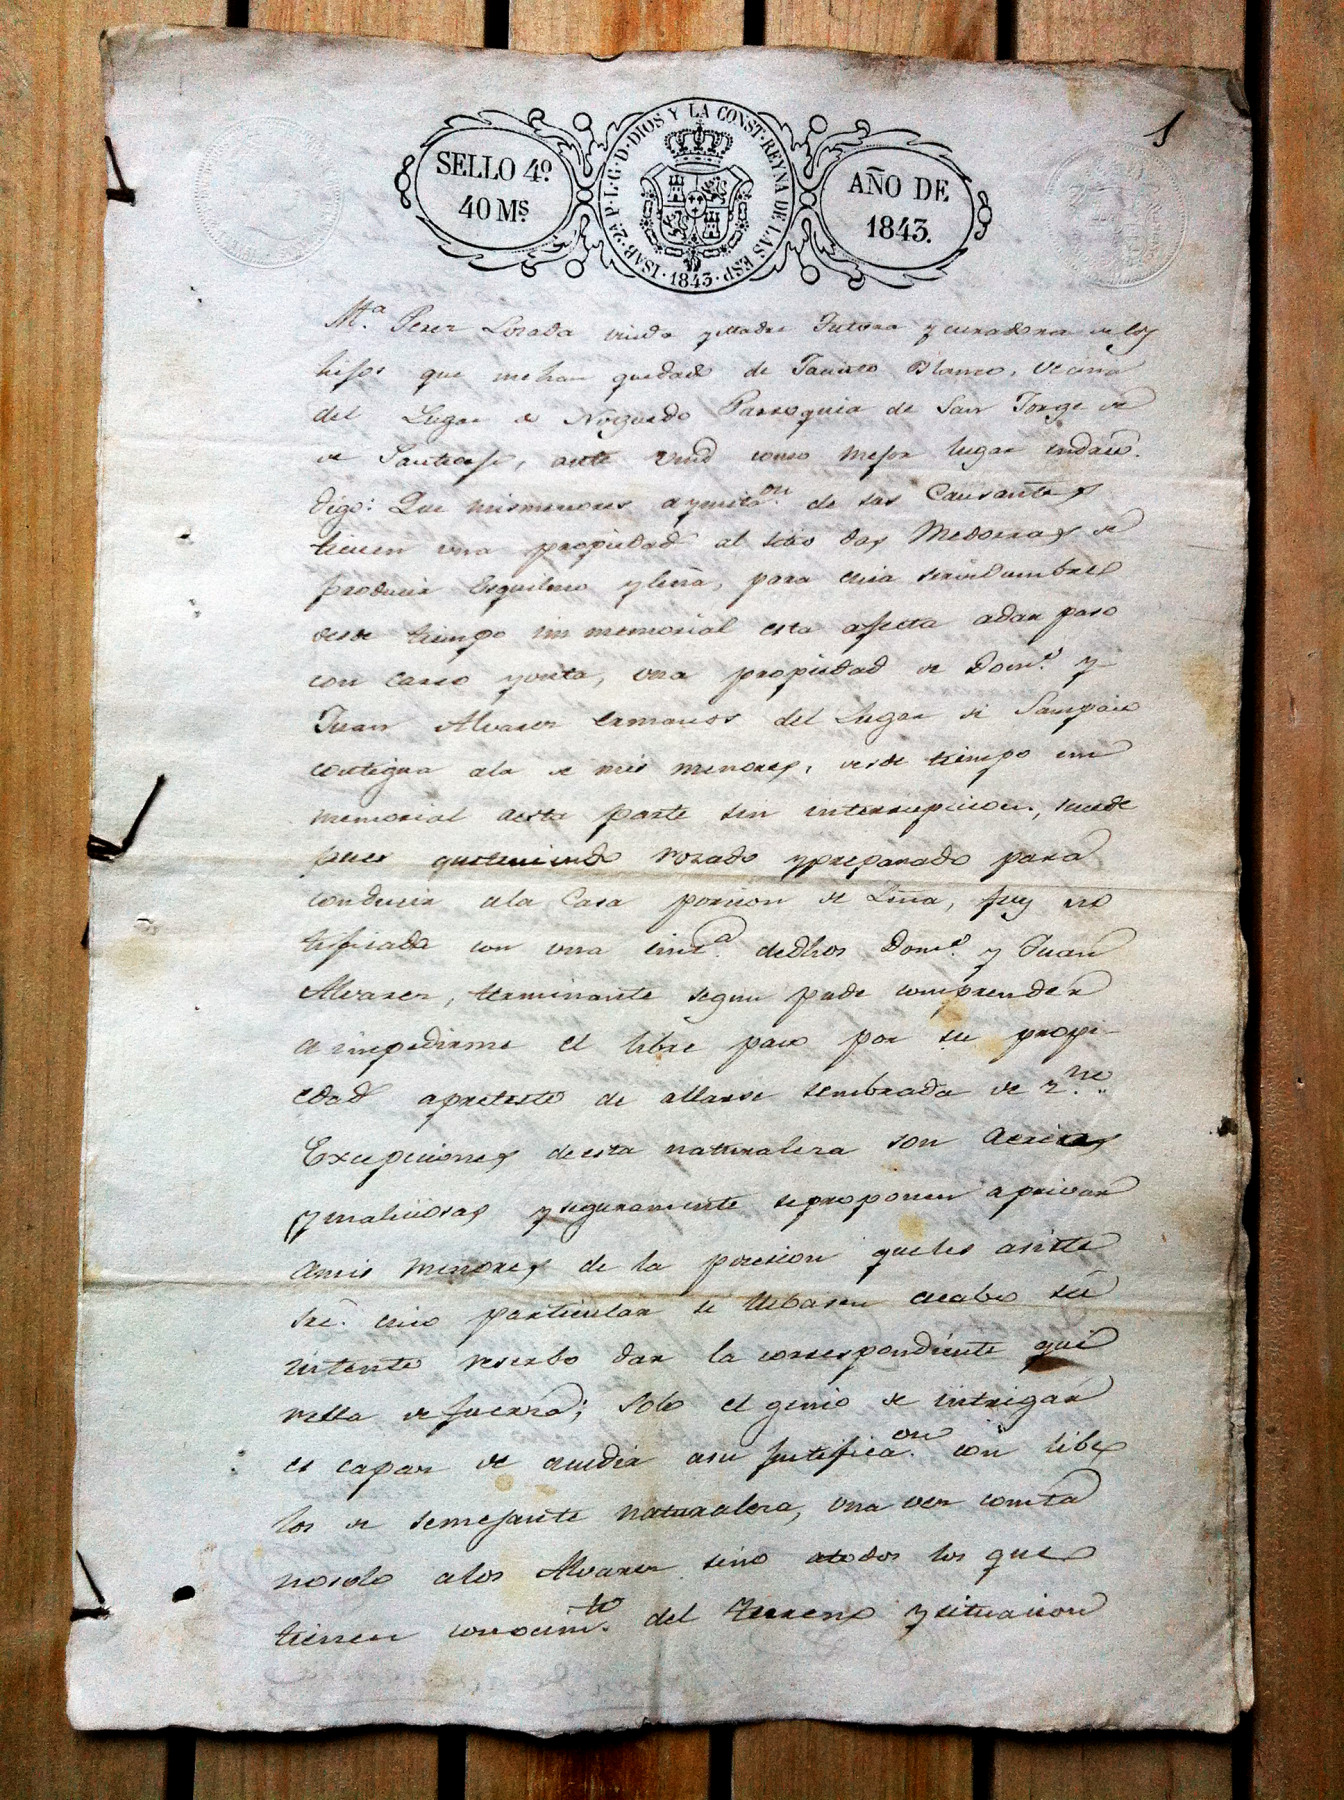 1
SELLO 4º.
40 Mˢ
ISAB·2ª P·L·G·D·DIOS Y LA CONST·REYNA DE LAS ESP·1843·
AÑO DE
1843.
M.ª Perez Losada viuda y Madre Tutora y curadora de los
hijos que me han quedado de Blanco, vecina
del Lugar de Parroquia de San Jorge de
de ante Vmd como mejor lugar
digo: Que mis menores de sus Causantes
tienen una propiedad al sitio das Medorras de
producir Esquilmo y leña, para cuia servidumbre
desde tiempo inmemorial esta afecta a dar paso
con carro y una propiedad de Dom.º y
Juan Alvarez ermanos del Lugar de Sampaio
contigua a la de mis menores, desde tiempo inme
memorial a esta parte sin interrupcion, sucede
pues que teniendo rozado y preparado para
conducir a la Casa porcion de Leña, fuy no
tificada con una de dhos Dom.º y Juan
Alvarez, terminante segun pude comprender
a impedirme el libre paso por su propi-
edad a preteste de allarse sembrada de
Excepciones de esta naturaleza son
y maliciosas y seguramente se proponen a privar
a mis menores de la posesion que les asiste
sre. cuio particular si llebasen a cabo su
intento reserbo dar la correspondiente que
rella de fuerza; solo el genio de intrigar
es capaz de acudir a su justifica.on con libe
los de semejante naturaleza, una vez consta
no solo a los Alvarez sino a todos los que
tienen conocim.to del terreno y situacion